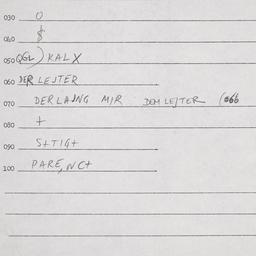 030 O
040 $
050 QGL) KALX
060 DER LEJTER
070 DERLAJNG MIR DEM LEJTER (066
080 +
090 S+TIG+
100 PARE, NC+